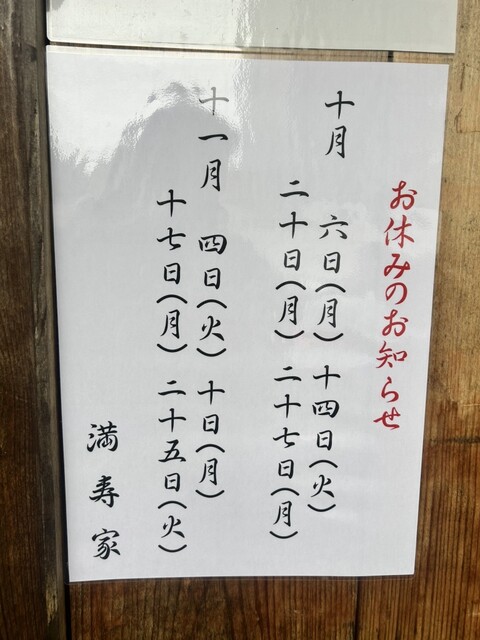 お休みのお知らせ
十月　六日(月)　十四日(火)
二十日(月)　二十七日(月)
十一月　四日(火)　十日(月)
十七日(月)　二十五日(火)
満寿家